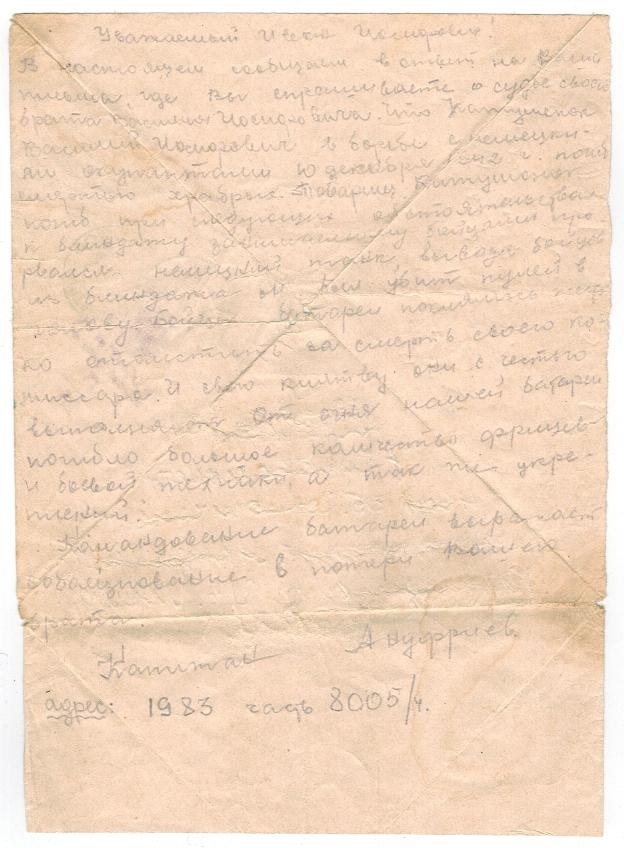 Уважаемый Исак Иосифович!
В настоящем сообщаем в ответ на Ваши
письма, где Вы спрашиваете о судьбе своего
брата Василия Иосифовича. Что
Василий Иосифович в борьбе с немецки-
ми оккупантами 10 декабря 1942 г. погиб
смертью храбрых. Товарищ
погиб при следующих обстоятельствах
к блиндажу занимаемому бойцами про
рвался немецкий танк, бойцов
из блиндажа и был убит пулей в
голову. Бойцы батареи поклялись жесто
ко отомстить за смерть своего ко-
миссара. И свою клятву они с честью
выполняют от огня нашей батареи
погибло большое количество фрицев
и боевой техники, а так же укре-
плений.
Командование батареи выражает
соболезнование в потери Вашего
брата.
Капитан Ануфриев
адрес: 1983 часть 8005/ч.